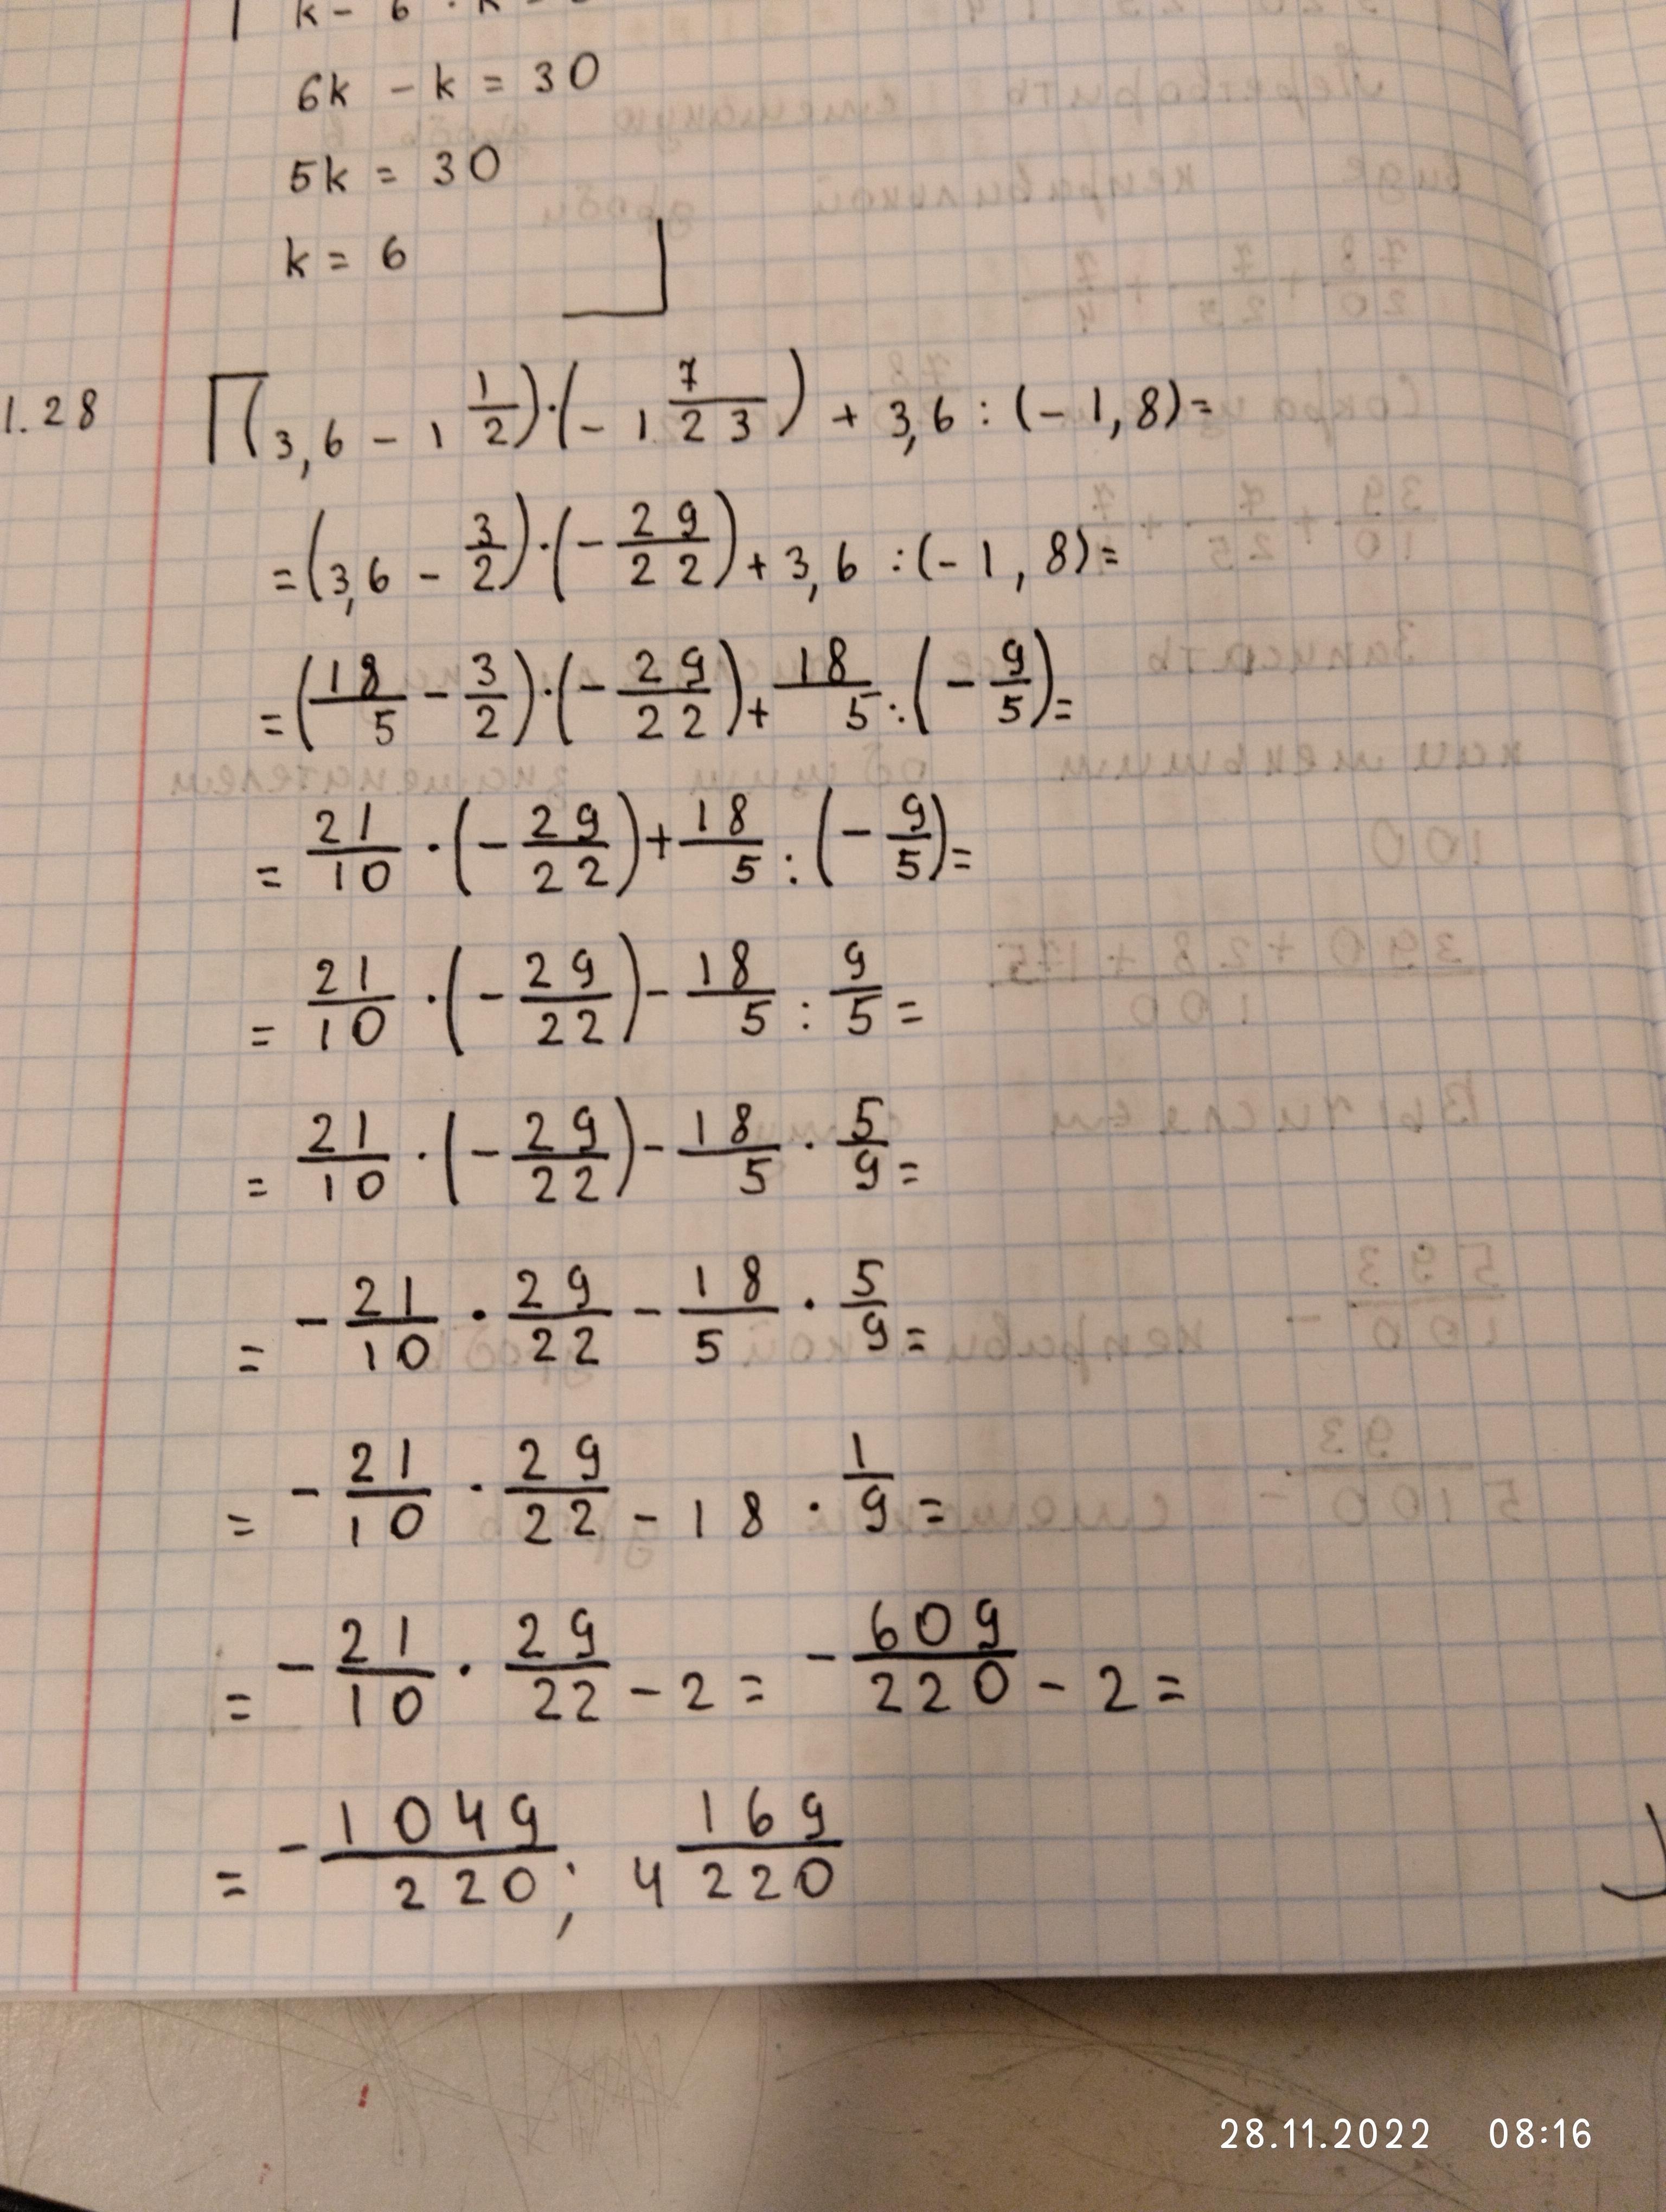 k - 6 · k =
6k - k = 30
5k = 30
k = 6
1.28 (3,6 - 1 1/2) · (- 1 7/23) + 3,6 : (- 1,8) =
= (3,6 - 3/2) · (- 29/22) + 3,6 : (- 1,8) =
= (18/5 - 3/2) · (- 29/22) + 18/5 : (- 9/5) =
= 21/10 · (- 29/22) + 18/5 : (- 9/5) =
= 21/10 · (- 29/22) - 18/5 : 9/5 =
= 21/10 · (- 29/22) - 18/5 · 5/9 =
= - 21/10 · 29/22 - 18/5 · 5/9 =
= - 21/10 · 29/22 - 18 · 1/9 =
= - 21/10 · 29/22 - 2 = - 609/220 - 2 =
= - 1049/220 ; 4 169/220
28.11.2022 08:16